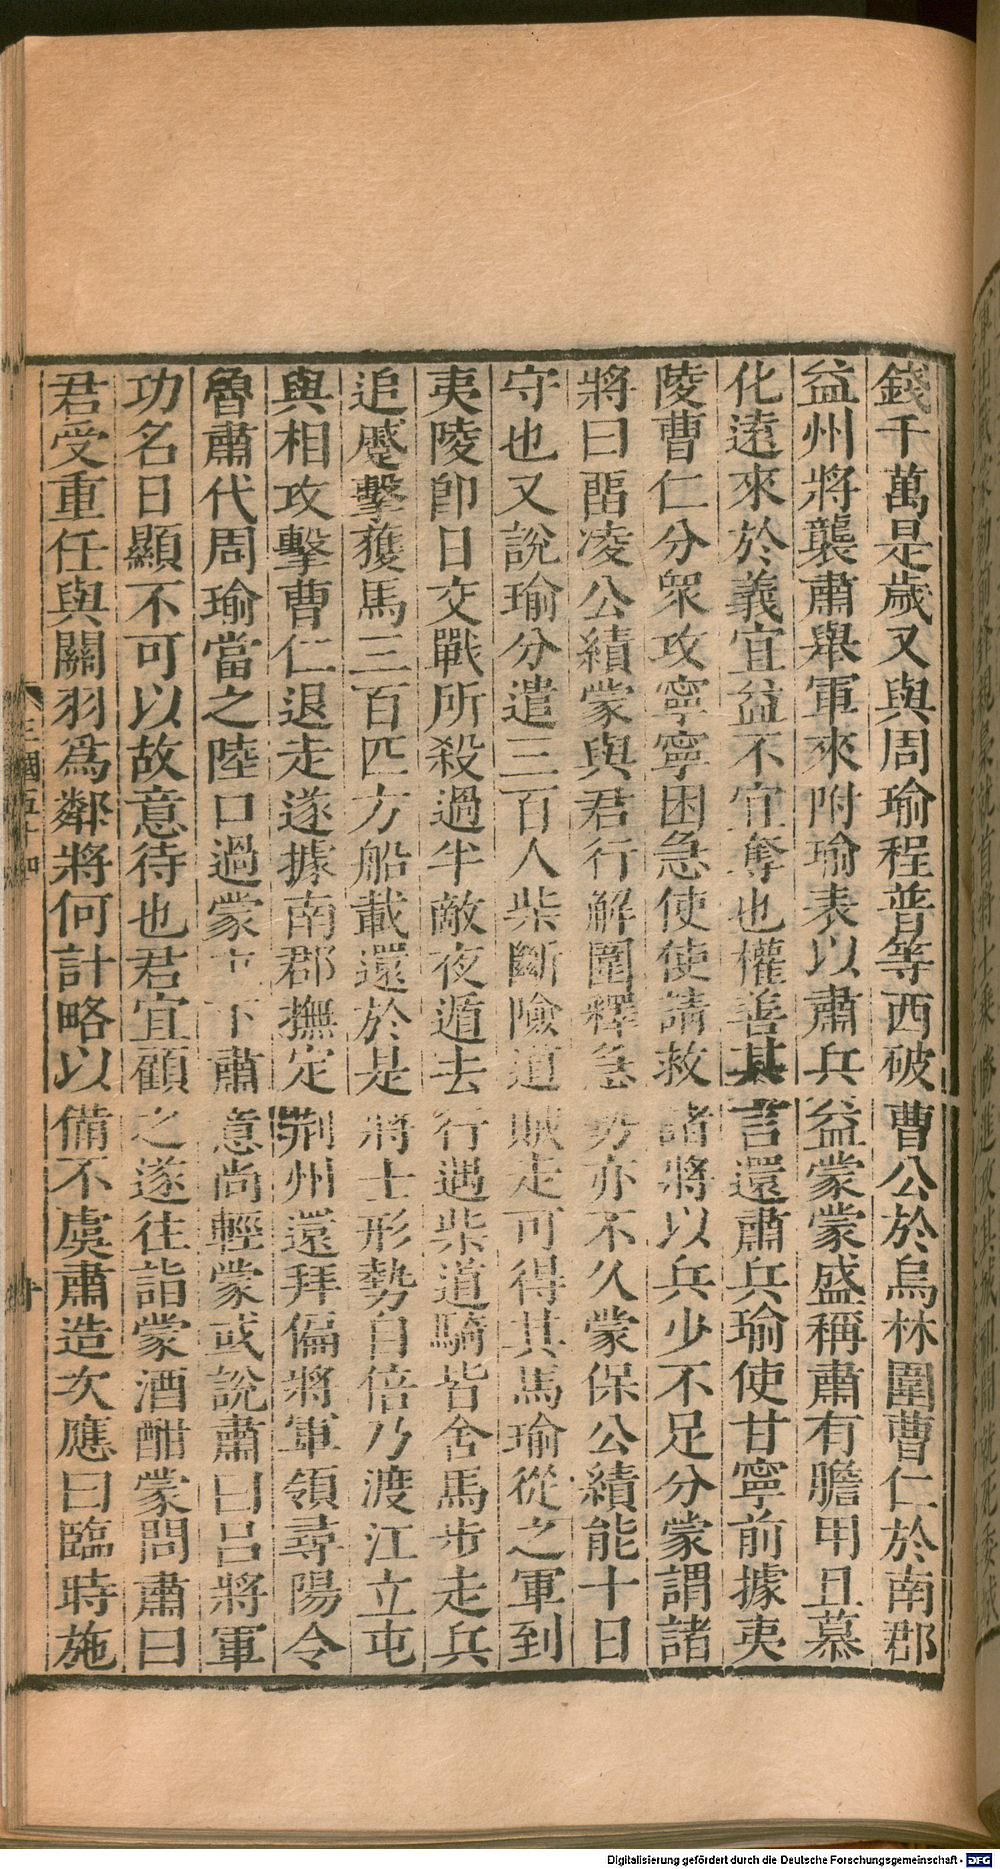 錢千萬是歲又與周瑜程普等西破曹公於烏林圍曹仁於南郡
益州將襲肅舉軍來附瑜表以肅兵益蒙蒙盛稱肅有膽用且慕
化遠來於義宜益不宜奪也權善其言還肅兵瑜使甘寧前據夷
陵曹仁分衆攻寧寧困急使使請救諸將以兵少不足分蒙謂諸
將曰畱凌公績蒙與君行解圍釋急勢亦不久蒙保公績能十日
守也又說瑜分遣三百人柴斷險道賊走可得其馬瑜從之軍到
夷陵卽日交戰所殺過半敵夜遁去行遇柴道騎皆舍馬步走兵
追蹙擊獲馬三百匹方船載還於是將士形勢自倍乃渡江立屯
與相攻擊曹仁退走遂據南郡撫定荆州還拜偏將軍領尋陽令
魯肅代周瑜當之陸口過蒙屯下肅意尚輕蒙或說肅曰呂將軍
功名日顯不可以故意待也君宜顧之遂往詣蒙酒酣蒙問肅曰
君受重任與關羽爲鄰將何計略以備不虞肅造次應曰臨時施
三國五十四
十
Digitalisierung gefördert durch die Deutsche Forschungsgemeinschaft - DFG